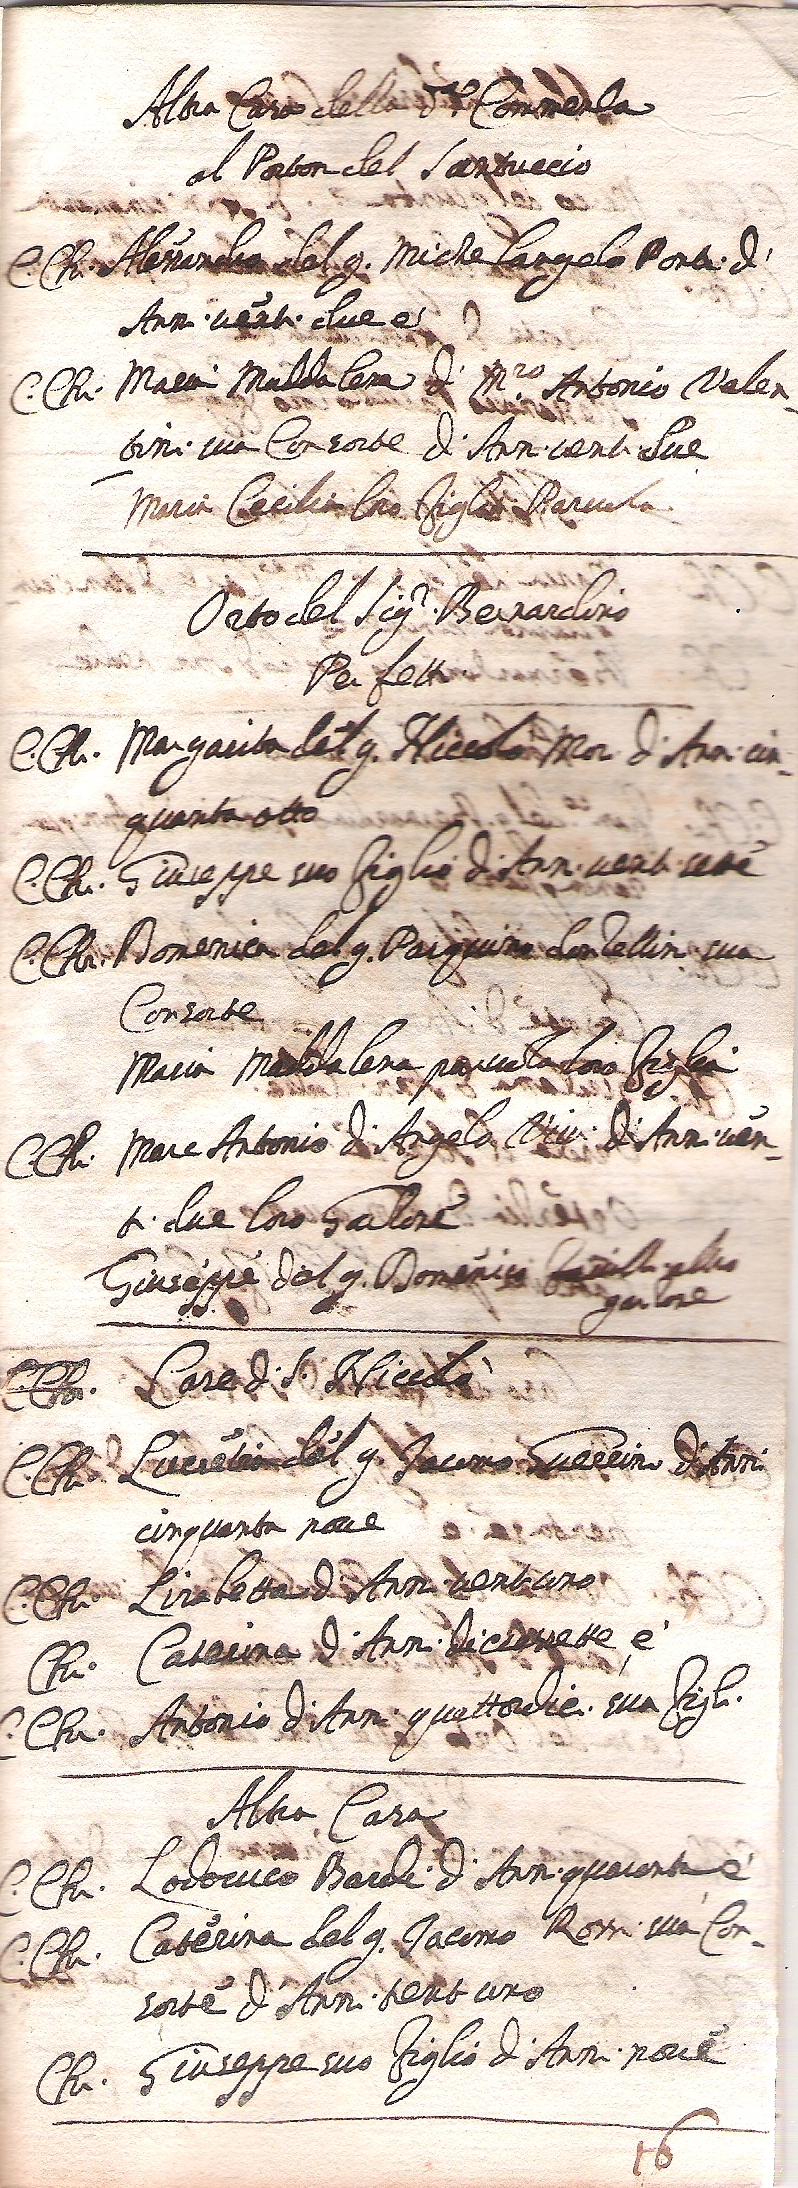 Altra Casa della d.ª Commenda
al Porton del Santuccio
C. Ch. Alessandro del q. Michelangelo Ponti d'
Ann. venti due e'
C. Ch. Maria Maddalena d' M.ro Antonio Valen-
tini sua Consorte d'Ann. venti due
Maria Cecilia loro figlia Parvula
Orto del Sig.r Bernardino
Perfetti
C. Ch. Margarita del q. Niccolò Mori d'Ann. cin-
quanta otto
C. Ch. Giuseppe suo figlio d'Ann. venti sette
C. Ch. Domenica del q. Pasquino sua
Consorte
Maria Maddalena parvula loro figlia
C. Ch. Marc Antonio d'Angelo Vivi d'Ann. ven-
ti due loro Garzone
Giuseppe del q. Domenico altro
garzone
C. Ch. Case di S. Niccolò
C. Ch. Lucretia del q. Jacomo Guerrini d'Ann.
cinquanta nove
C. Ch. Lisabetta d'Ann. vent uno
Ch. Caterina d'Ann. diciassette e'
C. Ch. Antonio d'Ann. quattordici sua figli
Altra Casa
C. Ch. Lodovico Bardi d'Ann. quaranta e'
C. Ch. Caterina del q. Jacomo Rossi sua Con-
sorte d'Ann. trent uno
Ch. Giuseppe suo figlio d'Ann. nove
16